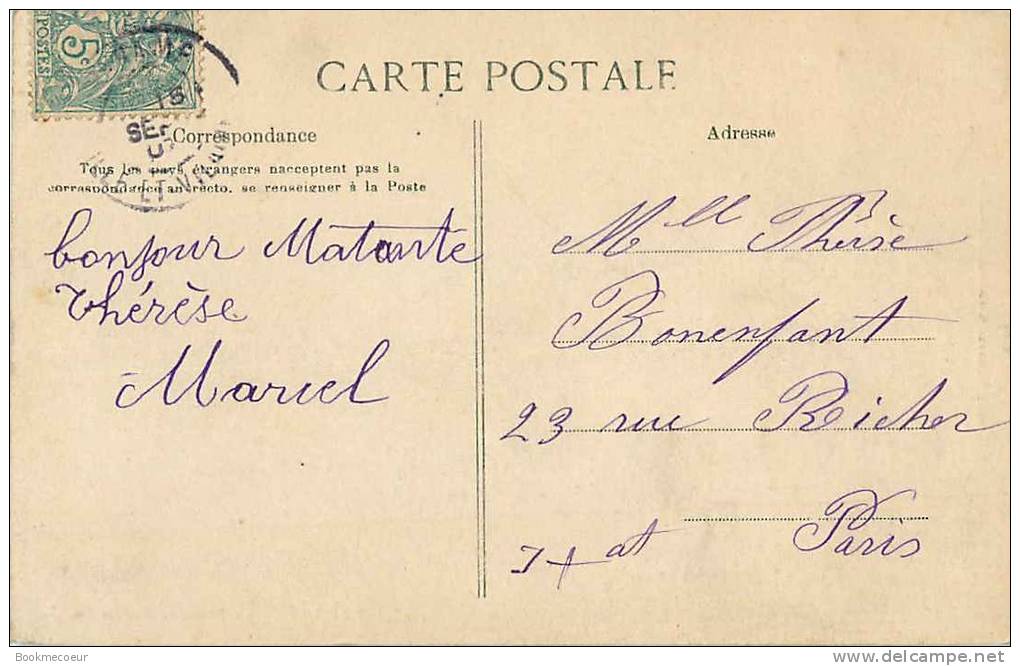 POSTES 5c
CARTE POSTALE
SEP
ILLE-ET-VILAINE
Correspondance
Tous les pays étrangers nacceptent pas la
correspondance au recto, se renseigner à la Poste
bonjour Matante
Thérèse
Marcel
Adresse
Mlle Thérèse
Bonenfant
23 rue Richer
Paris
Bookmecoeur
delcampe.net